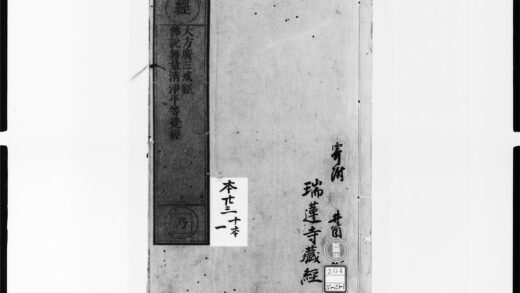 經
大方廣三戒經
佛說無量清淨平等覺經
乃
本廿三 十本
一
寄附
瑞蓮寺藏經
204